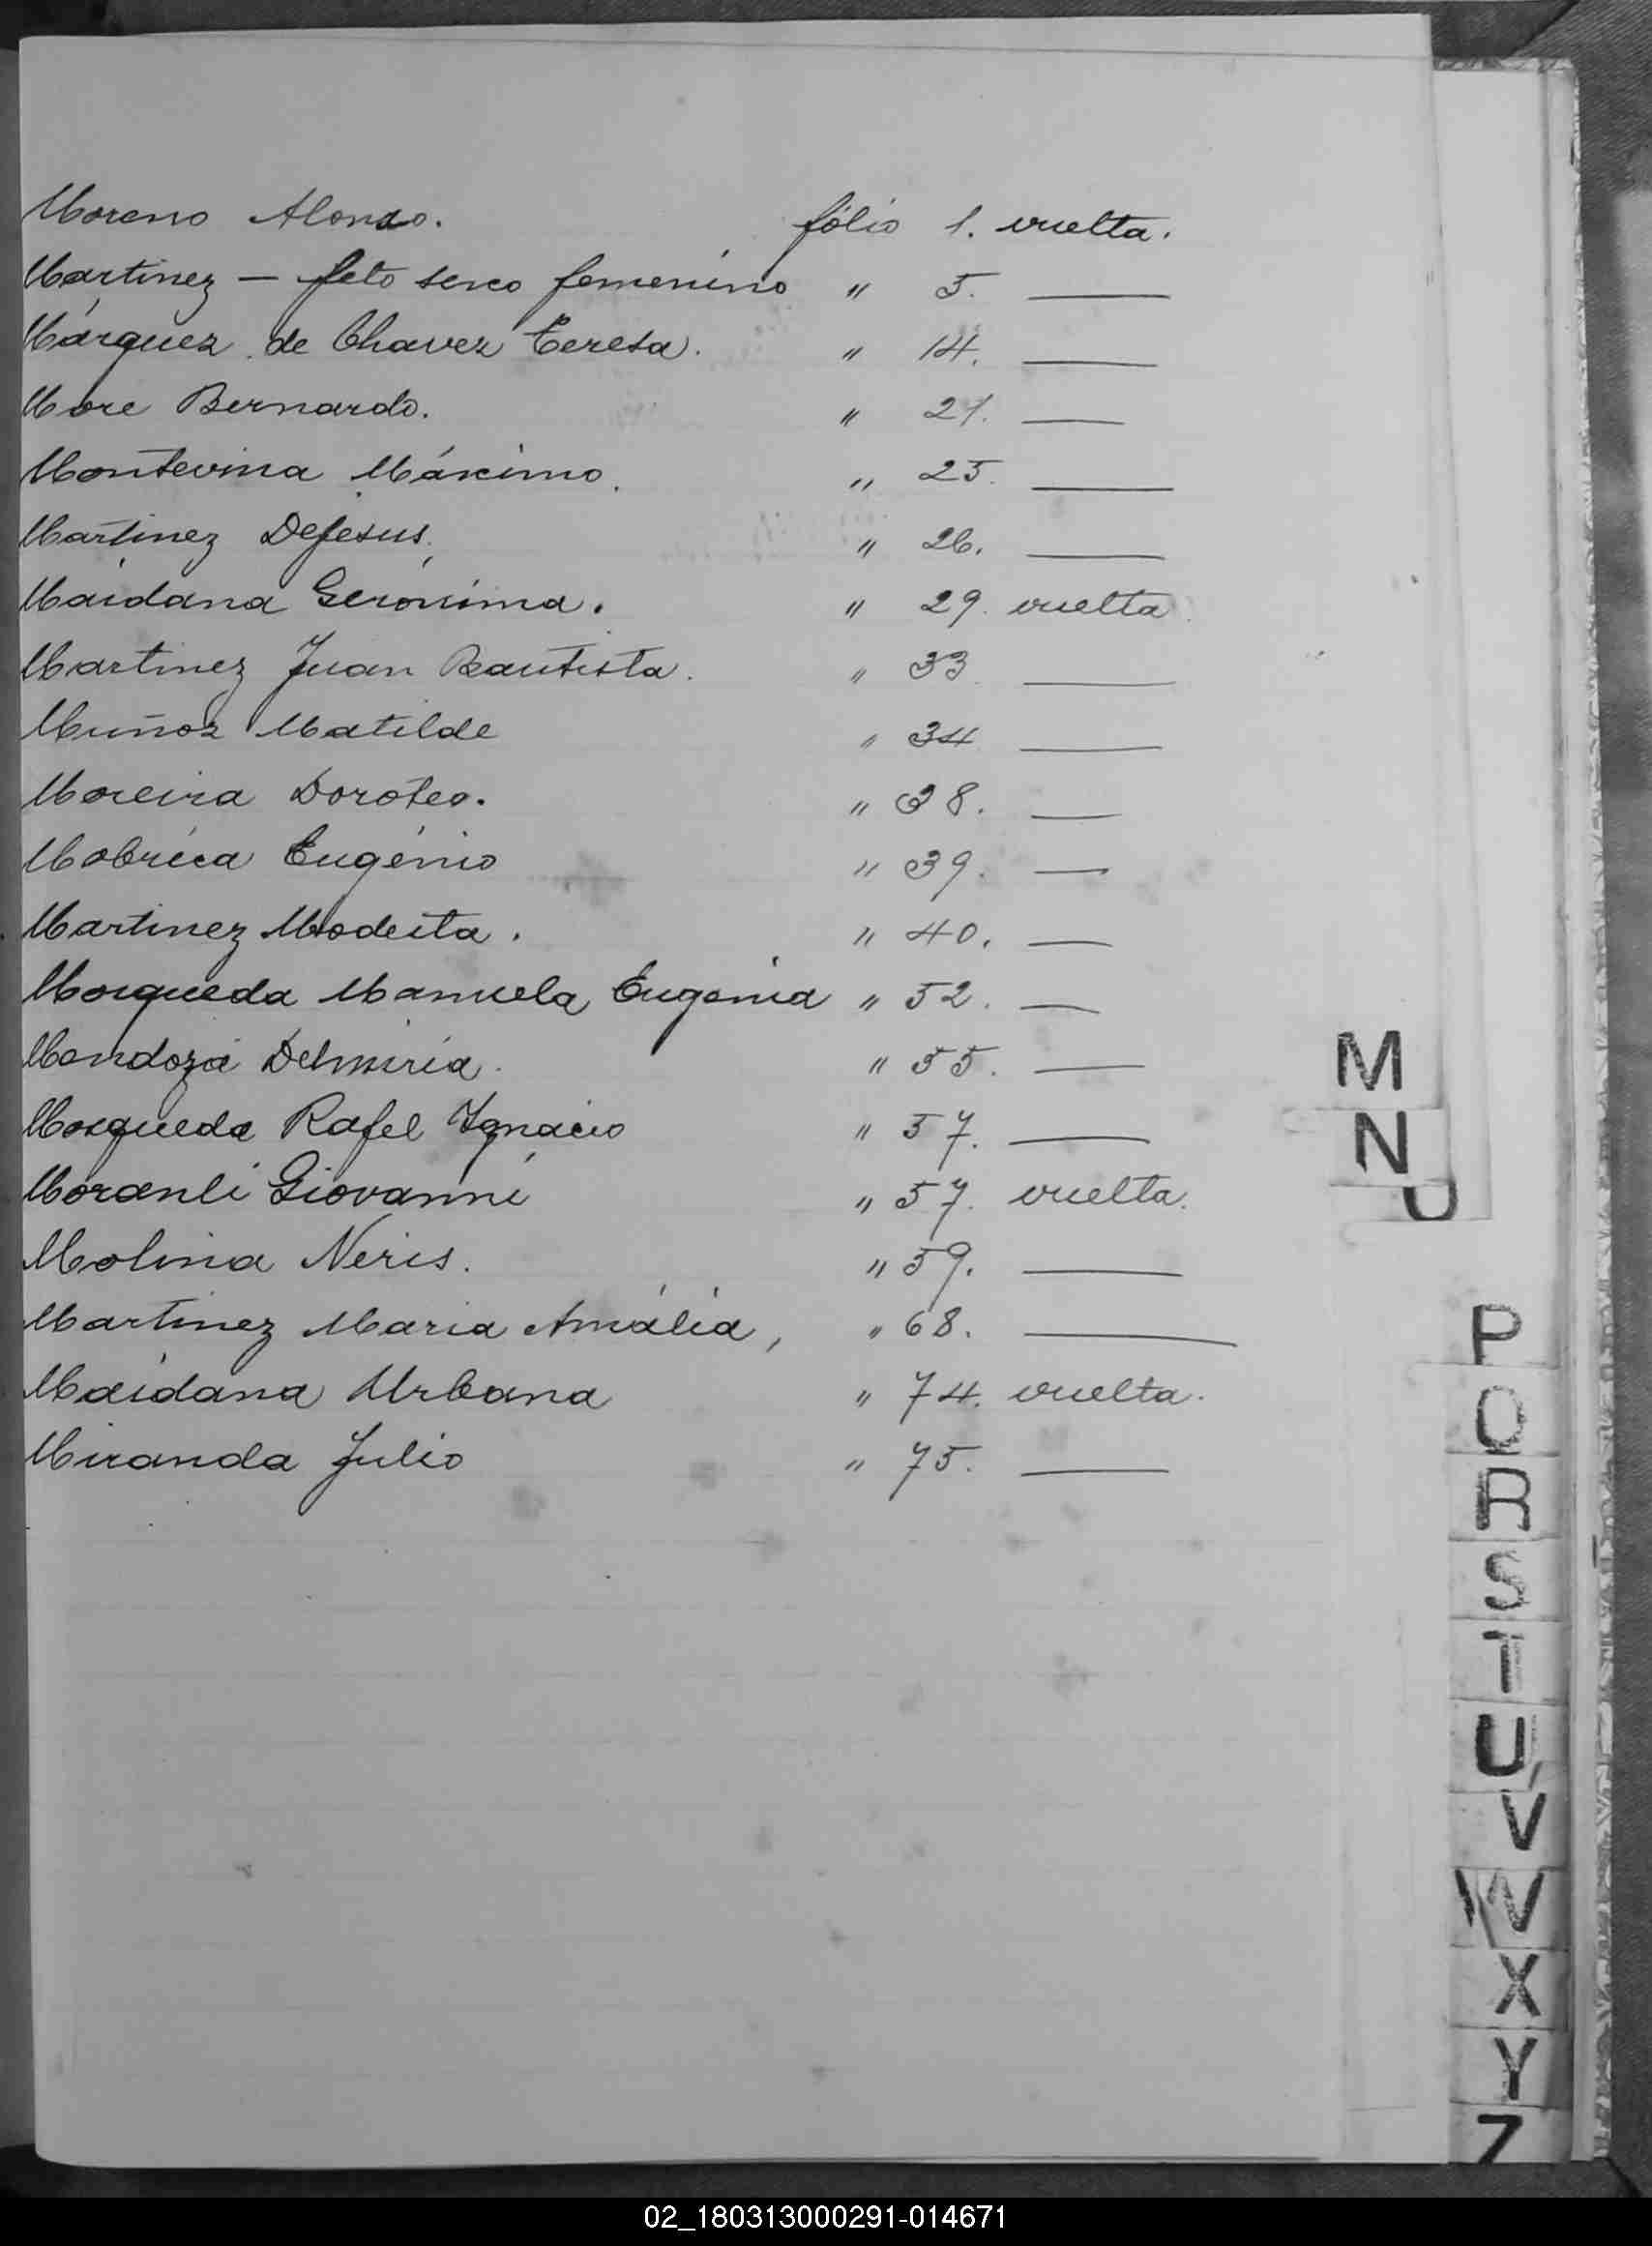 Moreno Alonso. fólio 1. vuelta.
Martinez — feto sexo femenino " 5. —
Márquez de Chavez Teresa. " 14. —
More Bernardo. " 21. —
Montevina Máximo. " 25. —
Martinez DeJesus. " 26. —
Maidana Gerónima. " 29. vuelta
Martinez Juan Bautista. " 33 —
Muñoz Matilde " 34 —
Moreira Doroteo. " 38. —
Mobrica Eugénio " 39. —
Martinez Modesta. " 40. —
Mosqueda Manuela Eugenia " 52. —
Mendoza Delmiria. " 55. —
Mosqueda Rafel Ygnacio " 57. —
Moranli Giovanni " 57. vuelta.
Molina Neris. " 59. —
Martinez Maria Amália, " 68. —
Maidana Urbana " 74. vuelta.
Miranda Julio " 75. —
M
N
O
P
Q
R
S
T
U
V
W
X
Y
Z
02_180313000291-014671